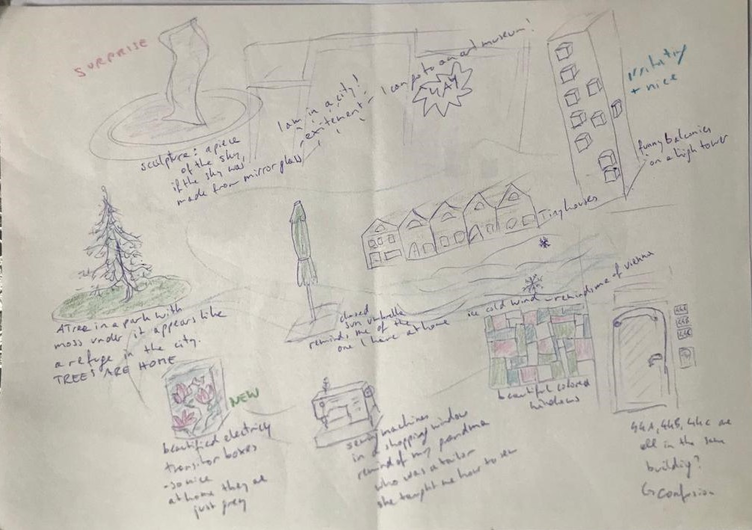 SURPRISE
sculpture: a piece
of the sky,
if the sky was
made from mirror glass
I am in a city!
exitement - I can go to an art museum!
YAY
irritating
+ nice
funny balconies
on a high tower
Tiny houses
A Tree in a park with
moss under it appears like
a refuge in the city.
TREES ARE HOME
closed
sun umbrella
reminds me of the
one I have at home
ice cold wind - reminds me of vienna
beautiful colored
windows
NEW
beautified electricity
boxes
-so nice
at home they are
just grey
sewing machines
in a shopping window
remind of my grandma
who was a tailor
she taught me how to sew
44A
44B
44C
44A, 44B, 44C are
all in the same
building?
confusion